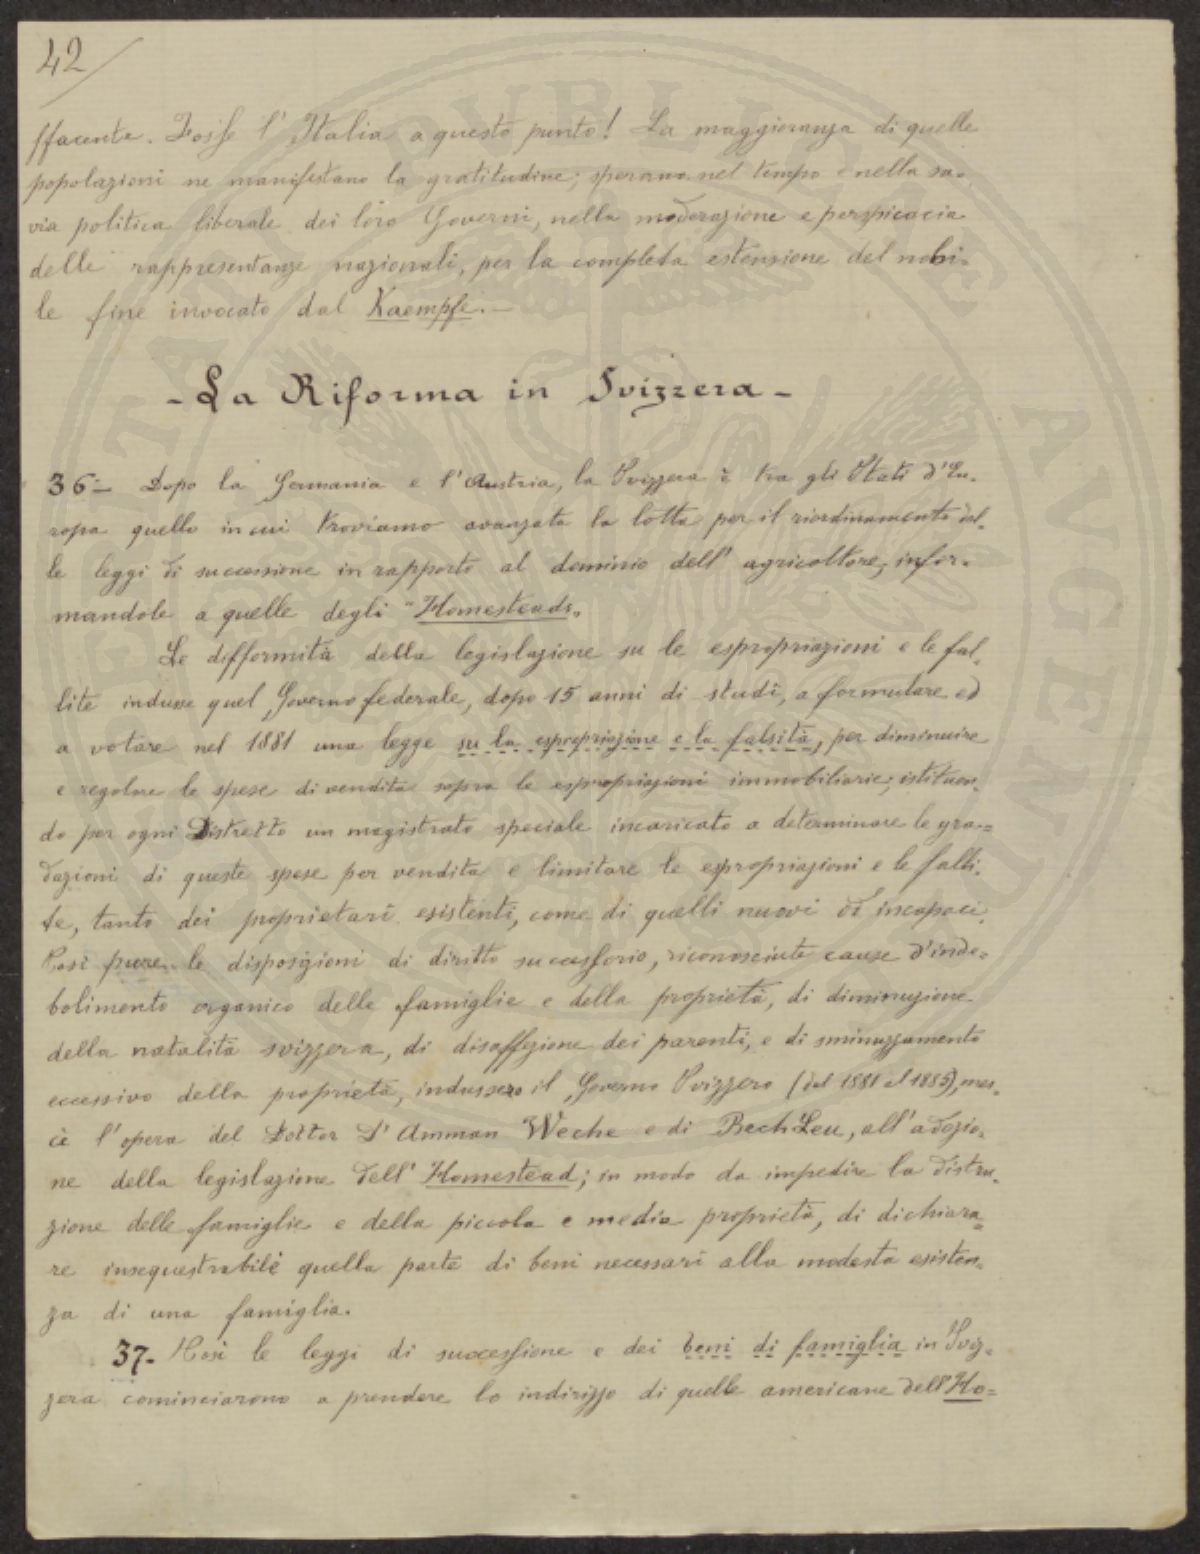 42/
ffacente. Fosse l'Italia a questo punto! La maggioranza di quelle
popolazioni ne manifestano la gratitudine; sperano nel tempo e nella sa-
via politica liberale dei loro Governi, nella moderazione e perspicacia
delle rappresentanze nazionali, per la completa estensione del nobi-
le fine invocato dal Kaempfe.—
- La Riforma in Svizzera -
36.— Dopo la Germania e l'Austria, la Svizzera è tra gli Stati d'Eu-
ropa quello in cui troviamo avanzata la lotta per il riordinamento del-
le leggi di successione in rapporto al dominio dell'agricoltore, infor-
mandole a quelle degli "Homesteads.
Le difformità della legislazione su le espropriazioni e le fal-
lite indusse quel Governo federale, dopo 15 anni di studi, a formulare ed
a votare nel 1881 una legge su la espropriazione e la falsità, per diminuire
e regolare le spese di vendita sopra le espropriazioni immobiliarie, istituen-
do per ogni Distretto un magistrato speciale incaricato a determinare le gra=
dazioni di queste spese per vendita e limitare le espropriazioni e le falli-
te, tanto dei proprietari esistenti, come di quelli nuovi od incapaci.
Così pure le disposizioni di diritto successorio, riconosciute cause d'inde-
bolimento organico delle famiglie e della proprietà, di diminuzione
della natalità svizzera, di disaffezione dei parenti, e di sminuzzamento
eccessivo della proprietà, indussero il Governo Svizzero (dal 1881 al 1885), mer-
cè l'opera del Dottor D'Amman Weche e di Bech Leu, all'adozio-
ne della legislazione dell'Homestead; in modo da impedire la distru-
zione delle famiglie e della piccola e media proprietà, di dichiara=
re insequestrabile quella parte di beni necessari alla modesta esisten-
za di una famiglia.
37- Così le leggi di successione e dei beni di famiglia in Sviz-
zera cominciarono a prendere lo indirizzo di quelle americane dell'Ho=